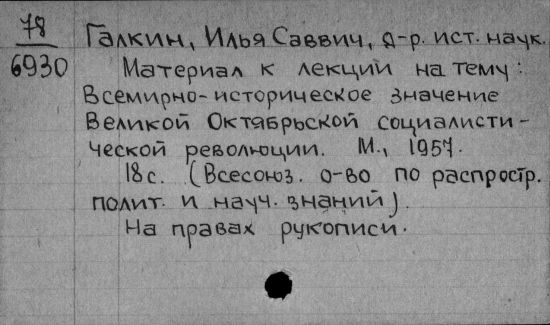 78
6930
Галкин, Илья Саввич, д-р. ист. наук.
Материал к лекции на тему:
Всемирно-историческое значение
Великой Октябрьской социалисти-
ческой революции. М., 1957.
18 с. (Всесоюз. о-во по распростр.
полит. и науч. знаний).
На правах рукописи.